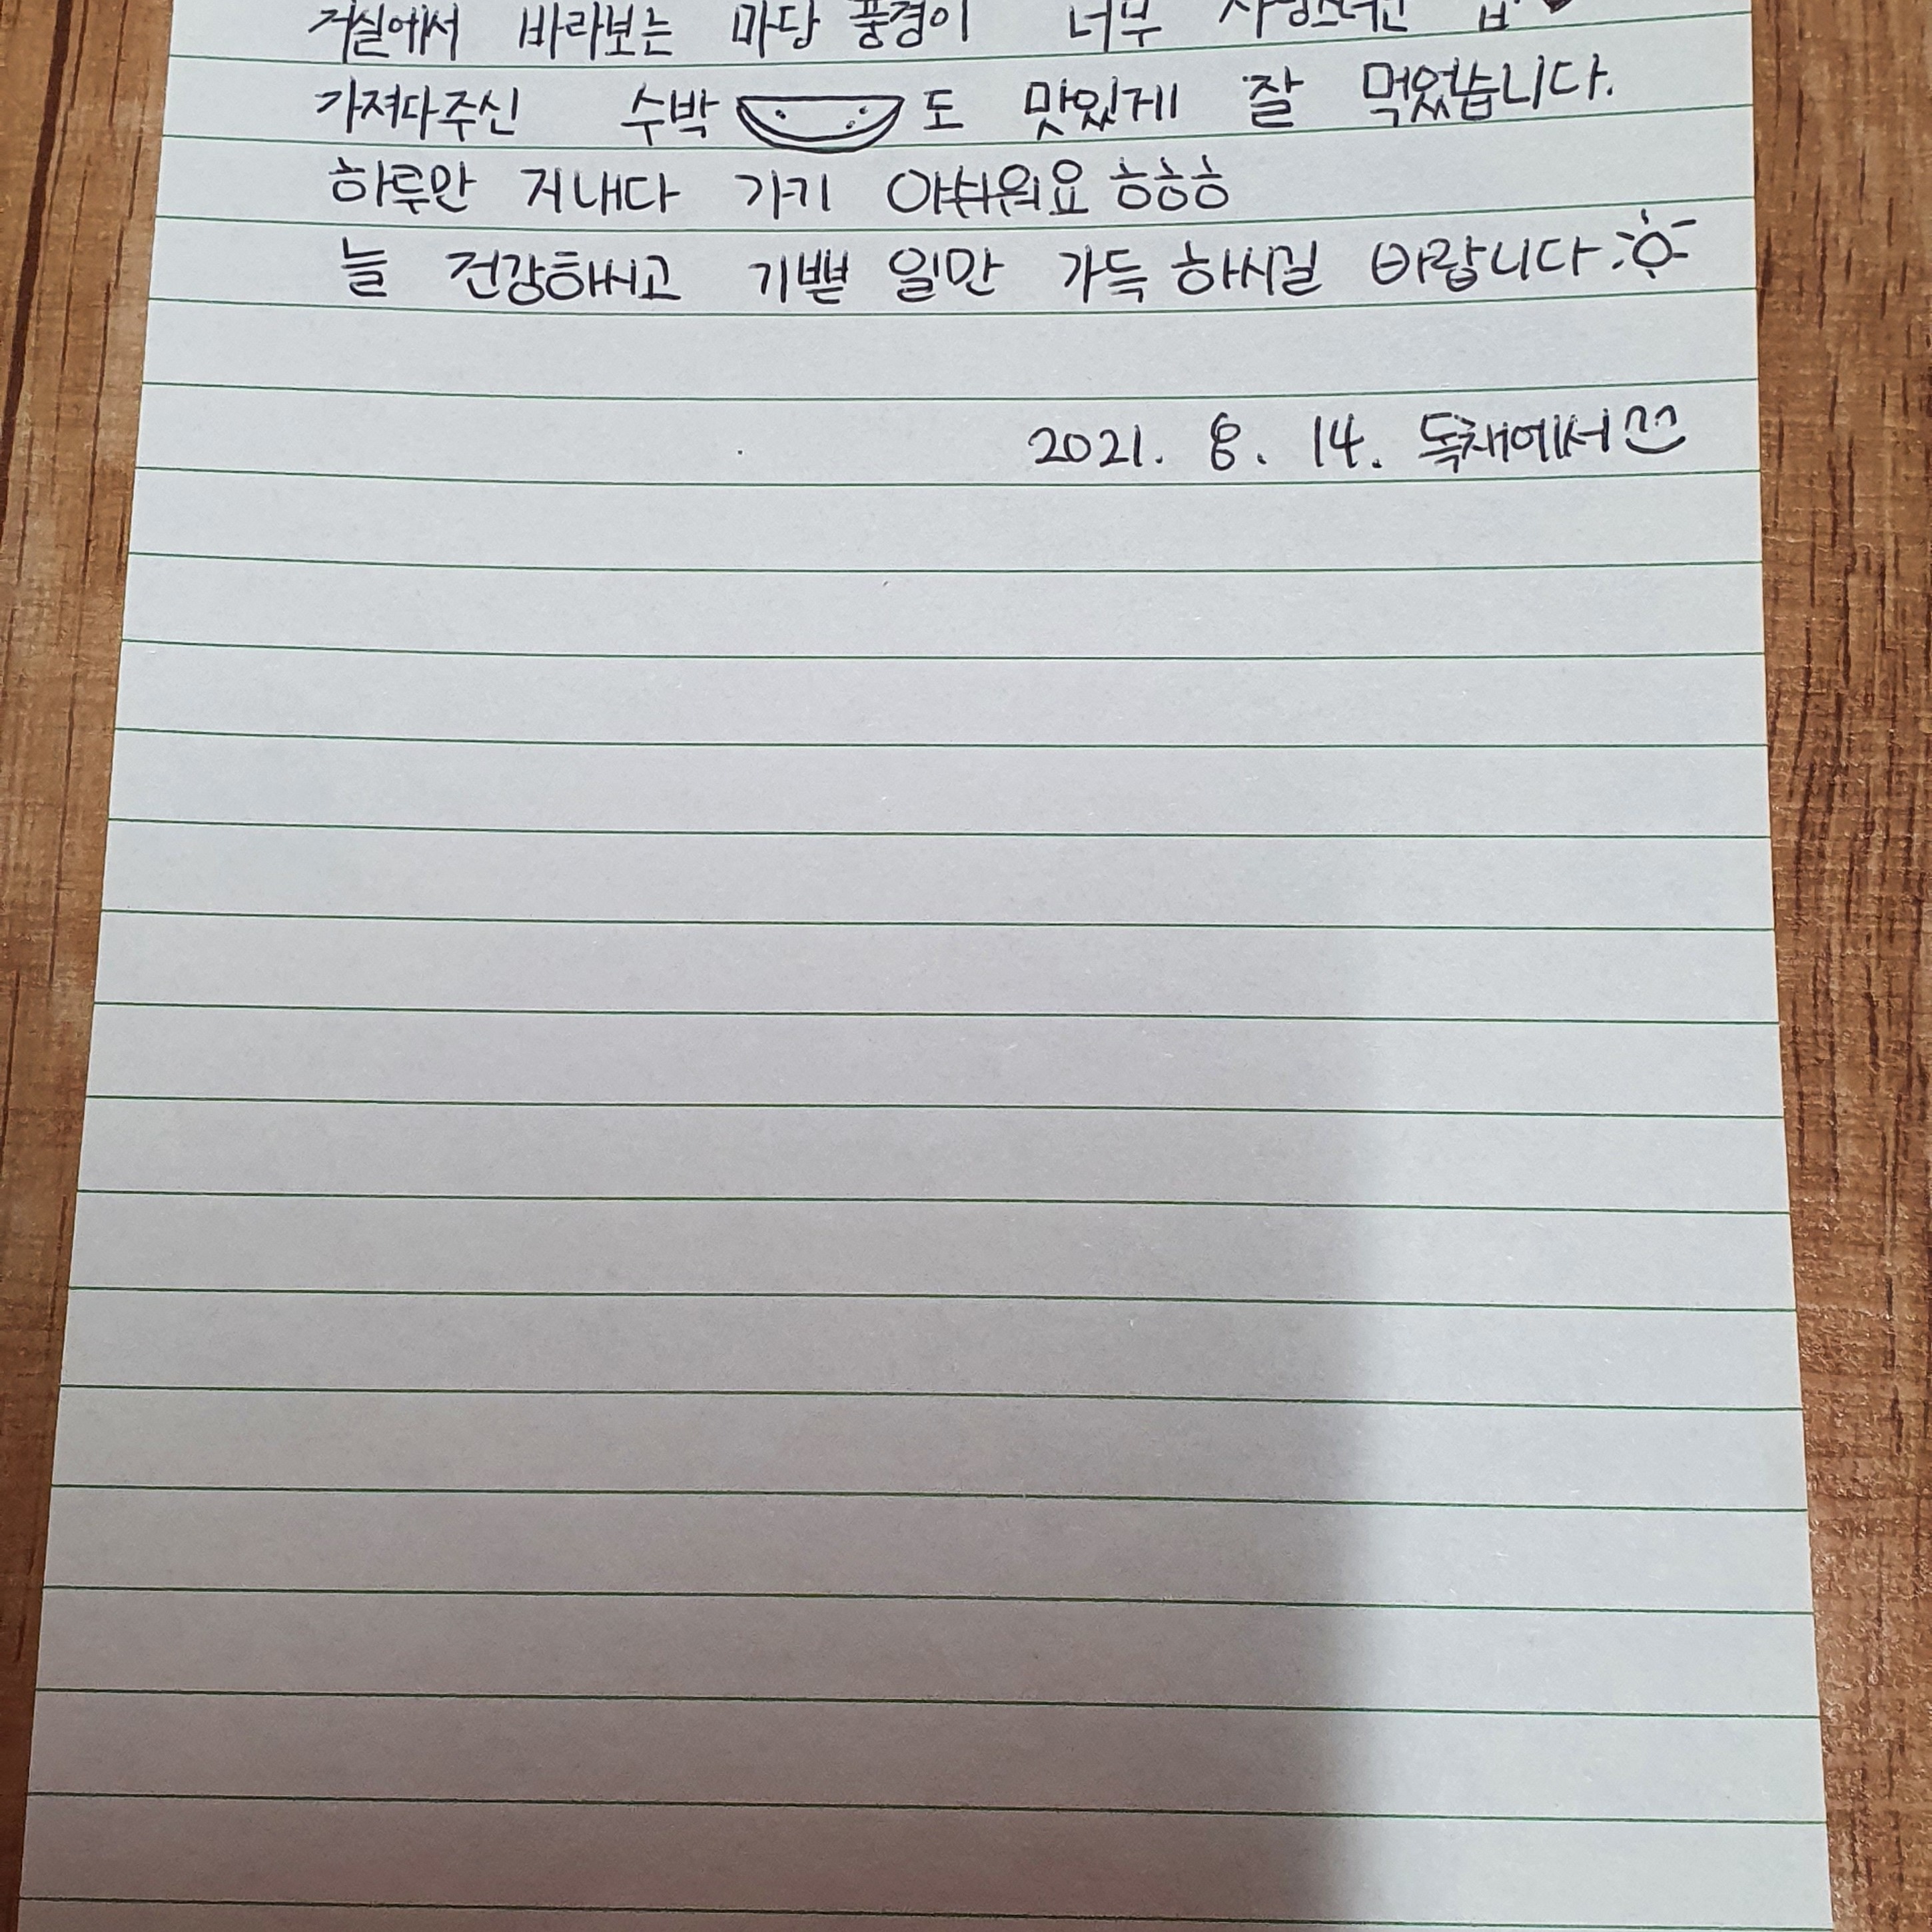 거실에서 바라보는 마당 풍경이 너무 사랑스러운 집
가져다주신 수박도 맛있게 잘 먹었습니다.
하루만 지내다 가기 아쉬워요 ㅎㅎㅎ
늘 건강하시고 기쁜 일만 가득 하시길 바랍니다
2021. 8. 14. 독채에서